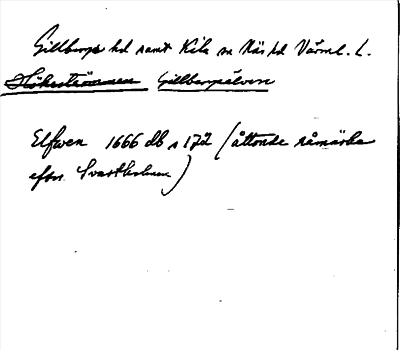 Gillbergs hd samt Kila sn Näs hd Värml. L.
Gillbergsälven
Elfwen 1666 db s 172 (åttonde råmärke
efter Svartholmen)